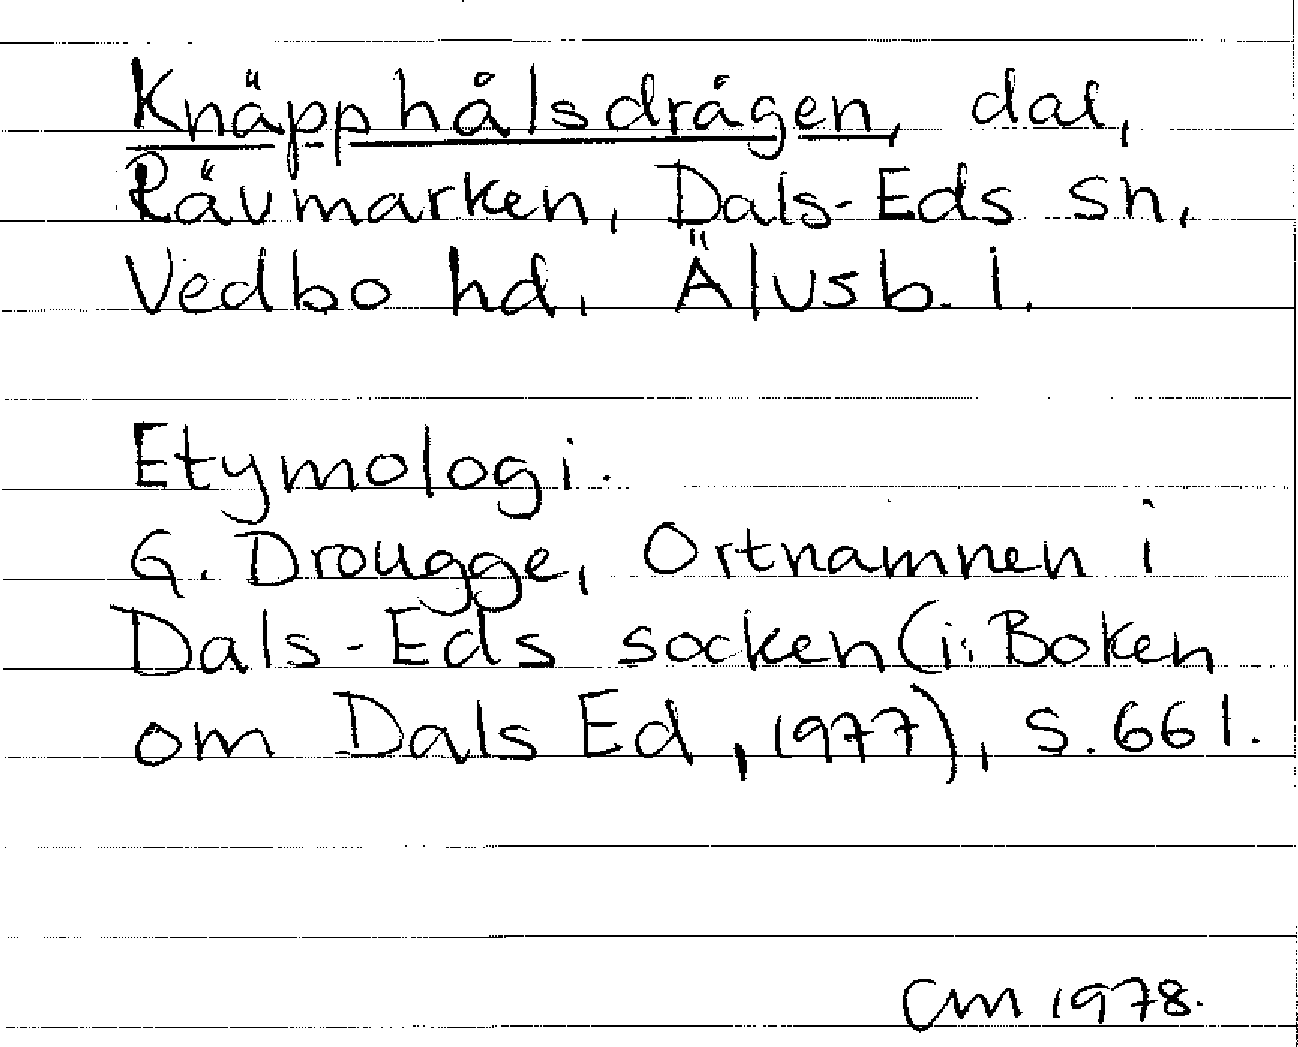 Knäpphålsdrågen, dal,
Rävmarken, Dals-Eds sn,
Vedbo hd, Älvsb. l.
Etymologi.
G. Drougge, Ortnamnen i
Dals-Eds socken (i: Boken
om Dals Ed, 1977), s. 661.
CM 1978.